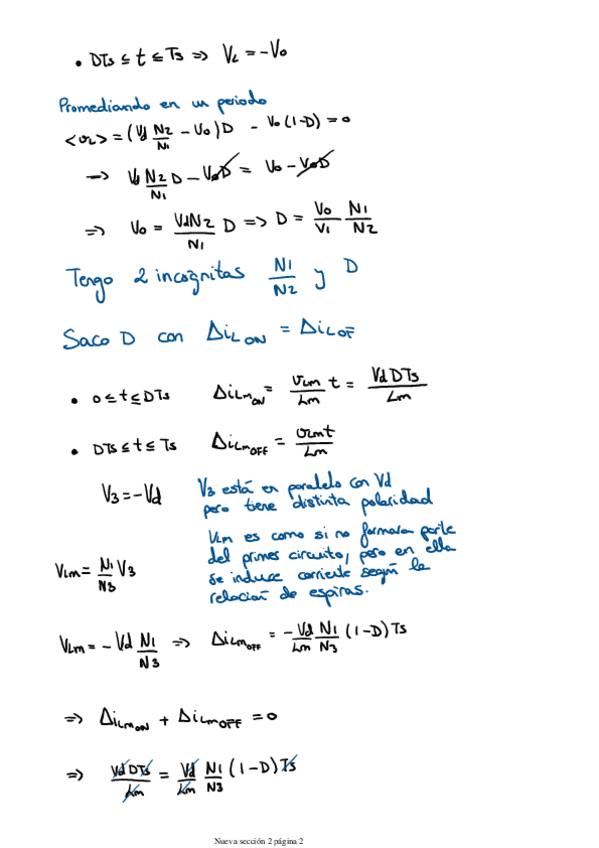 • DTs ≤ t ≤ Ts ⇒ VL = -Vo
Promediando en un periodo
<vL> = (Vd N2/N1 - Vo) D - Vo (1-D) = 0
→ Vd N2/N1 D - VoD = Vo - VoD
⇒ Vo = VdN2/N1 D ⇒ D = Vo/V1 N1/N2
Tengo 2 incognitas N1/N2 y D
Saco D con ΔiL ON = ΔiL OF
• 0 ≤ t ≤ DTs ΔiLm ON = vLm/Lm t = Vd DTs/Lm
• DTs ≤ t ≤ Ts ΔiLm OFF = vLm t/Lm
V3 = -Vd V3 está en paralelo con Vd
pero tiene distinta polaridad
VLm es como si no formara parte
del primer circuito, pero en ella
se induce corriente según la
relación de espiras.
VLm = N1/N3 V3
VLm = - Vd N1/N3 ⇒ ΔiLm OFF = -Vd/Lm N1/N3 (1-D) Ts
⇒ ΔiLm ON + ΔiLm OFF = 0
⇒ Vd DTs/Lm = Vd/Lm N1/N3 (1-D) Ts
Nueva sección 2 página 2